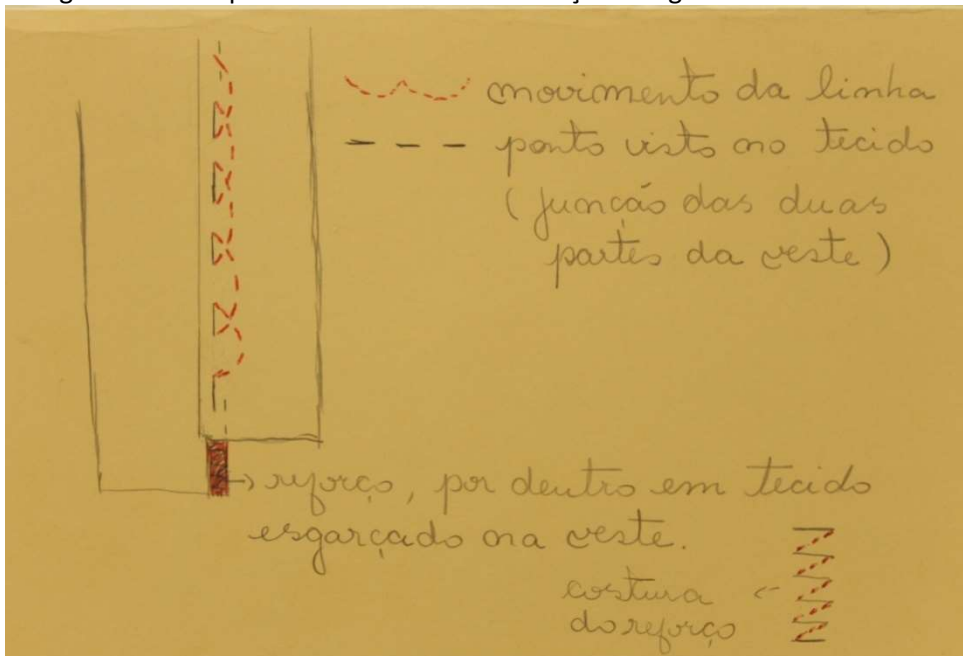 movimento da linha
ponto visto no tecido
(junção das duas
partes da veste)
reforço, por dentro em tecido
esgarçado na veste.
costura
do reforço